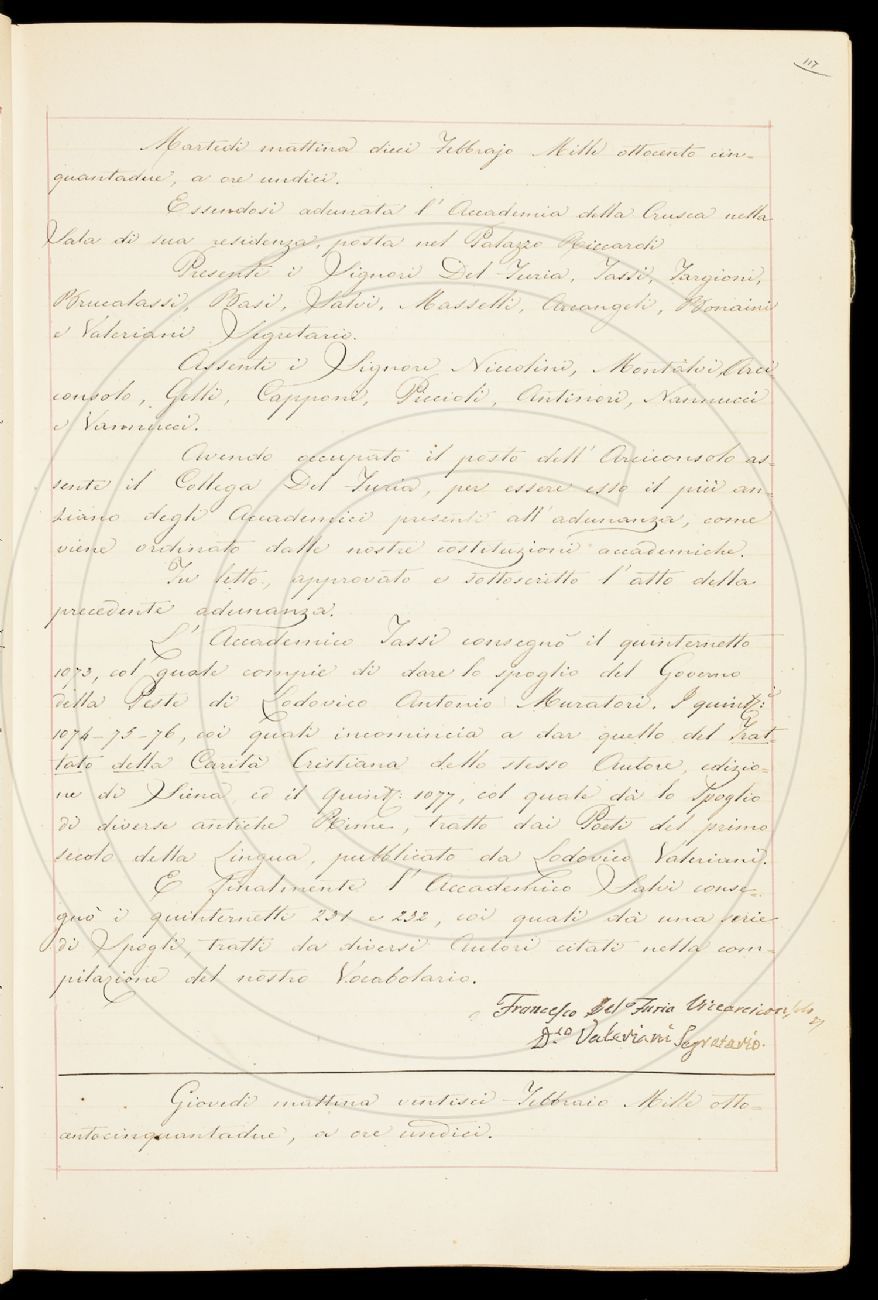 117
Martedì mattina dieci Febbrajo Mille ottocento cin=
quantadue, a ore undici.
Essendosi adunata l'Accademia della Crusca nella
Sala di sua residenza, posta nel Palazzo Riccardi
Presenti i Signori Del-Furia, Tassi, Targioni,
Brucalassi, Basi, Salvi, Masselli, Arcangeli, Bonaini
e Valeriani Segretario.
Assenti i Signori Niccolini, Montalvi Arci
consolo, Gelli, Capponi, Piccioli, Antinori, Nannucci
e Vannucci.
Avendo occupato il posto dell'Arciconsolo as=
sente il Collega Del-Furia, per essere esso il più an=
ziano degli Accademici presenti all'adunanza, come
viene ordinato dalle nostre costituzioni accademiche.
Fu letto, approvato e sottoscritto l'atto della
precedente adunanza.
L'Accademico Tassi consegnò il quinternetto
1073, col quale compie di dare lo spoglio del Governo
della Peste di Lodovico Antonio Muratori. I quintt:i
1074-75-76, coi quali incomincia a dar quello del Trat=
tato della Carità Cristiana dello stesso Autore, edizio=
ne di Siena ed il quint: 1077, col quale dà lo Spoglio
di diverse antiche Rime, tratto dai Poeti del primo
secolo della Lingua, pubblicato da Lodovico Valeriani.
E finalmente l'Accademico Salvi conse=
gnò i quinternetti 231 e 232, coi quali dà una serie
di Spogli, tratti da diversi Autori citati nella com=
pilazione del nostro Vocabolario.
Francesco Del Furia Vicearciconsolo
D.co Valeriani Segretario.
Giovedì mattina ventisei Febbraio Mille otto=
centocinquantadue, a ore undici.